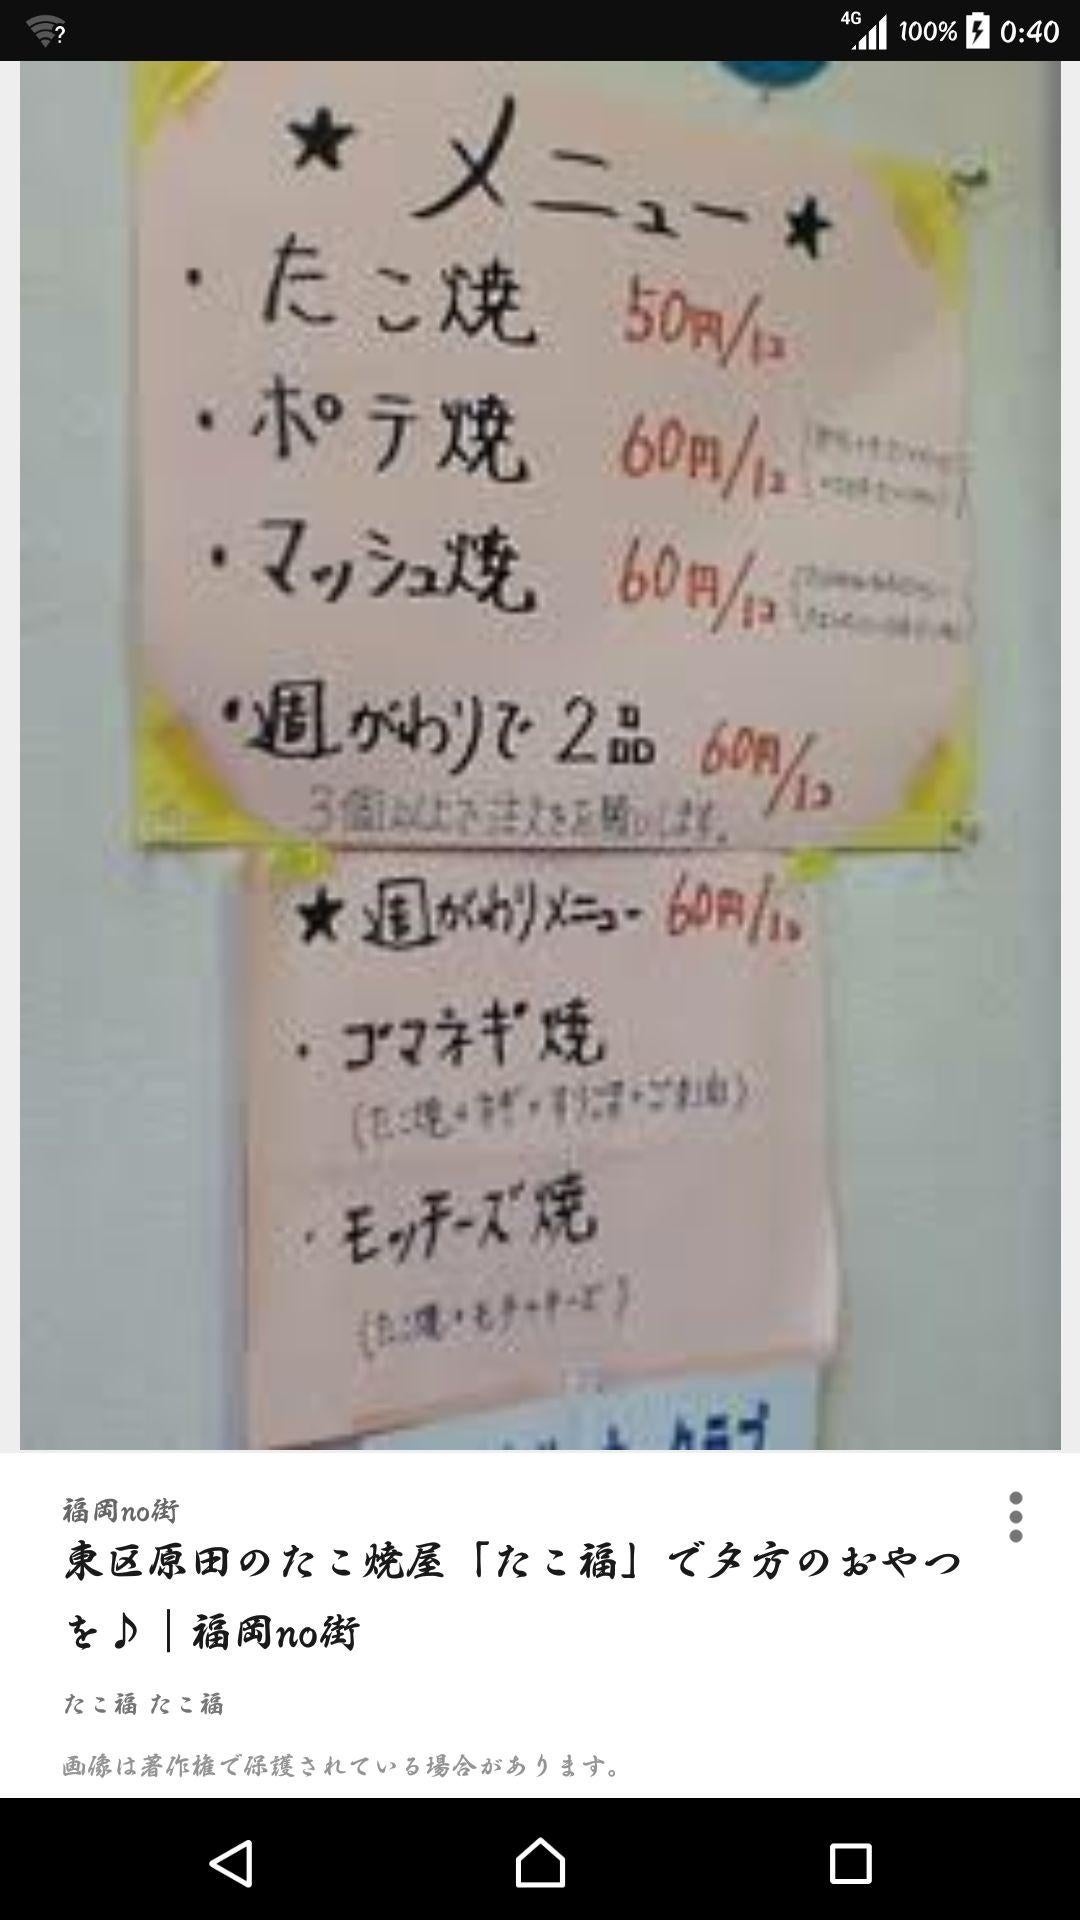 4G 100% 0:40
★ メニュー ★
・たこ焼 50円/1コ
・ポテ焼 60円/1コ
・マッシュ焼 60円/1コ
・週がわりで2品 60円/1コ
3個以上で注文をお願いします。
★ 週がわりメニュー 60円/1コ
・ゴマネギ焼
(たこ焼+ネギ+すりごま+ごま油)
・モッチーズ焼
(たこ焼+モチ+チーズ)
クラブ
福岡no街
東区原田のたこ焼屋「たこ福」で夕方のおやつ
を♪｜福岡no街
たこ福 たこ福
画像は著作権で保護されている場合があります。